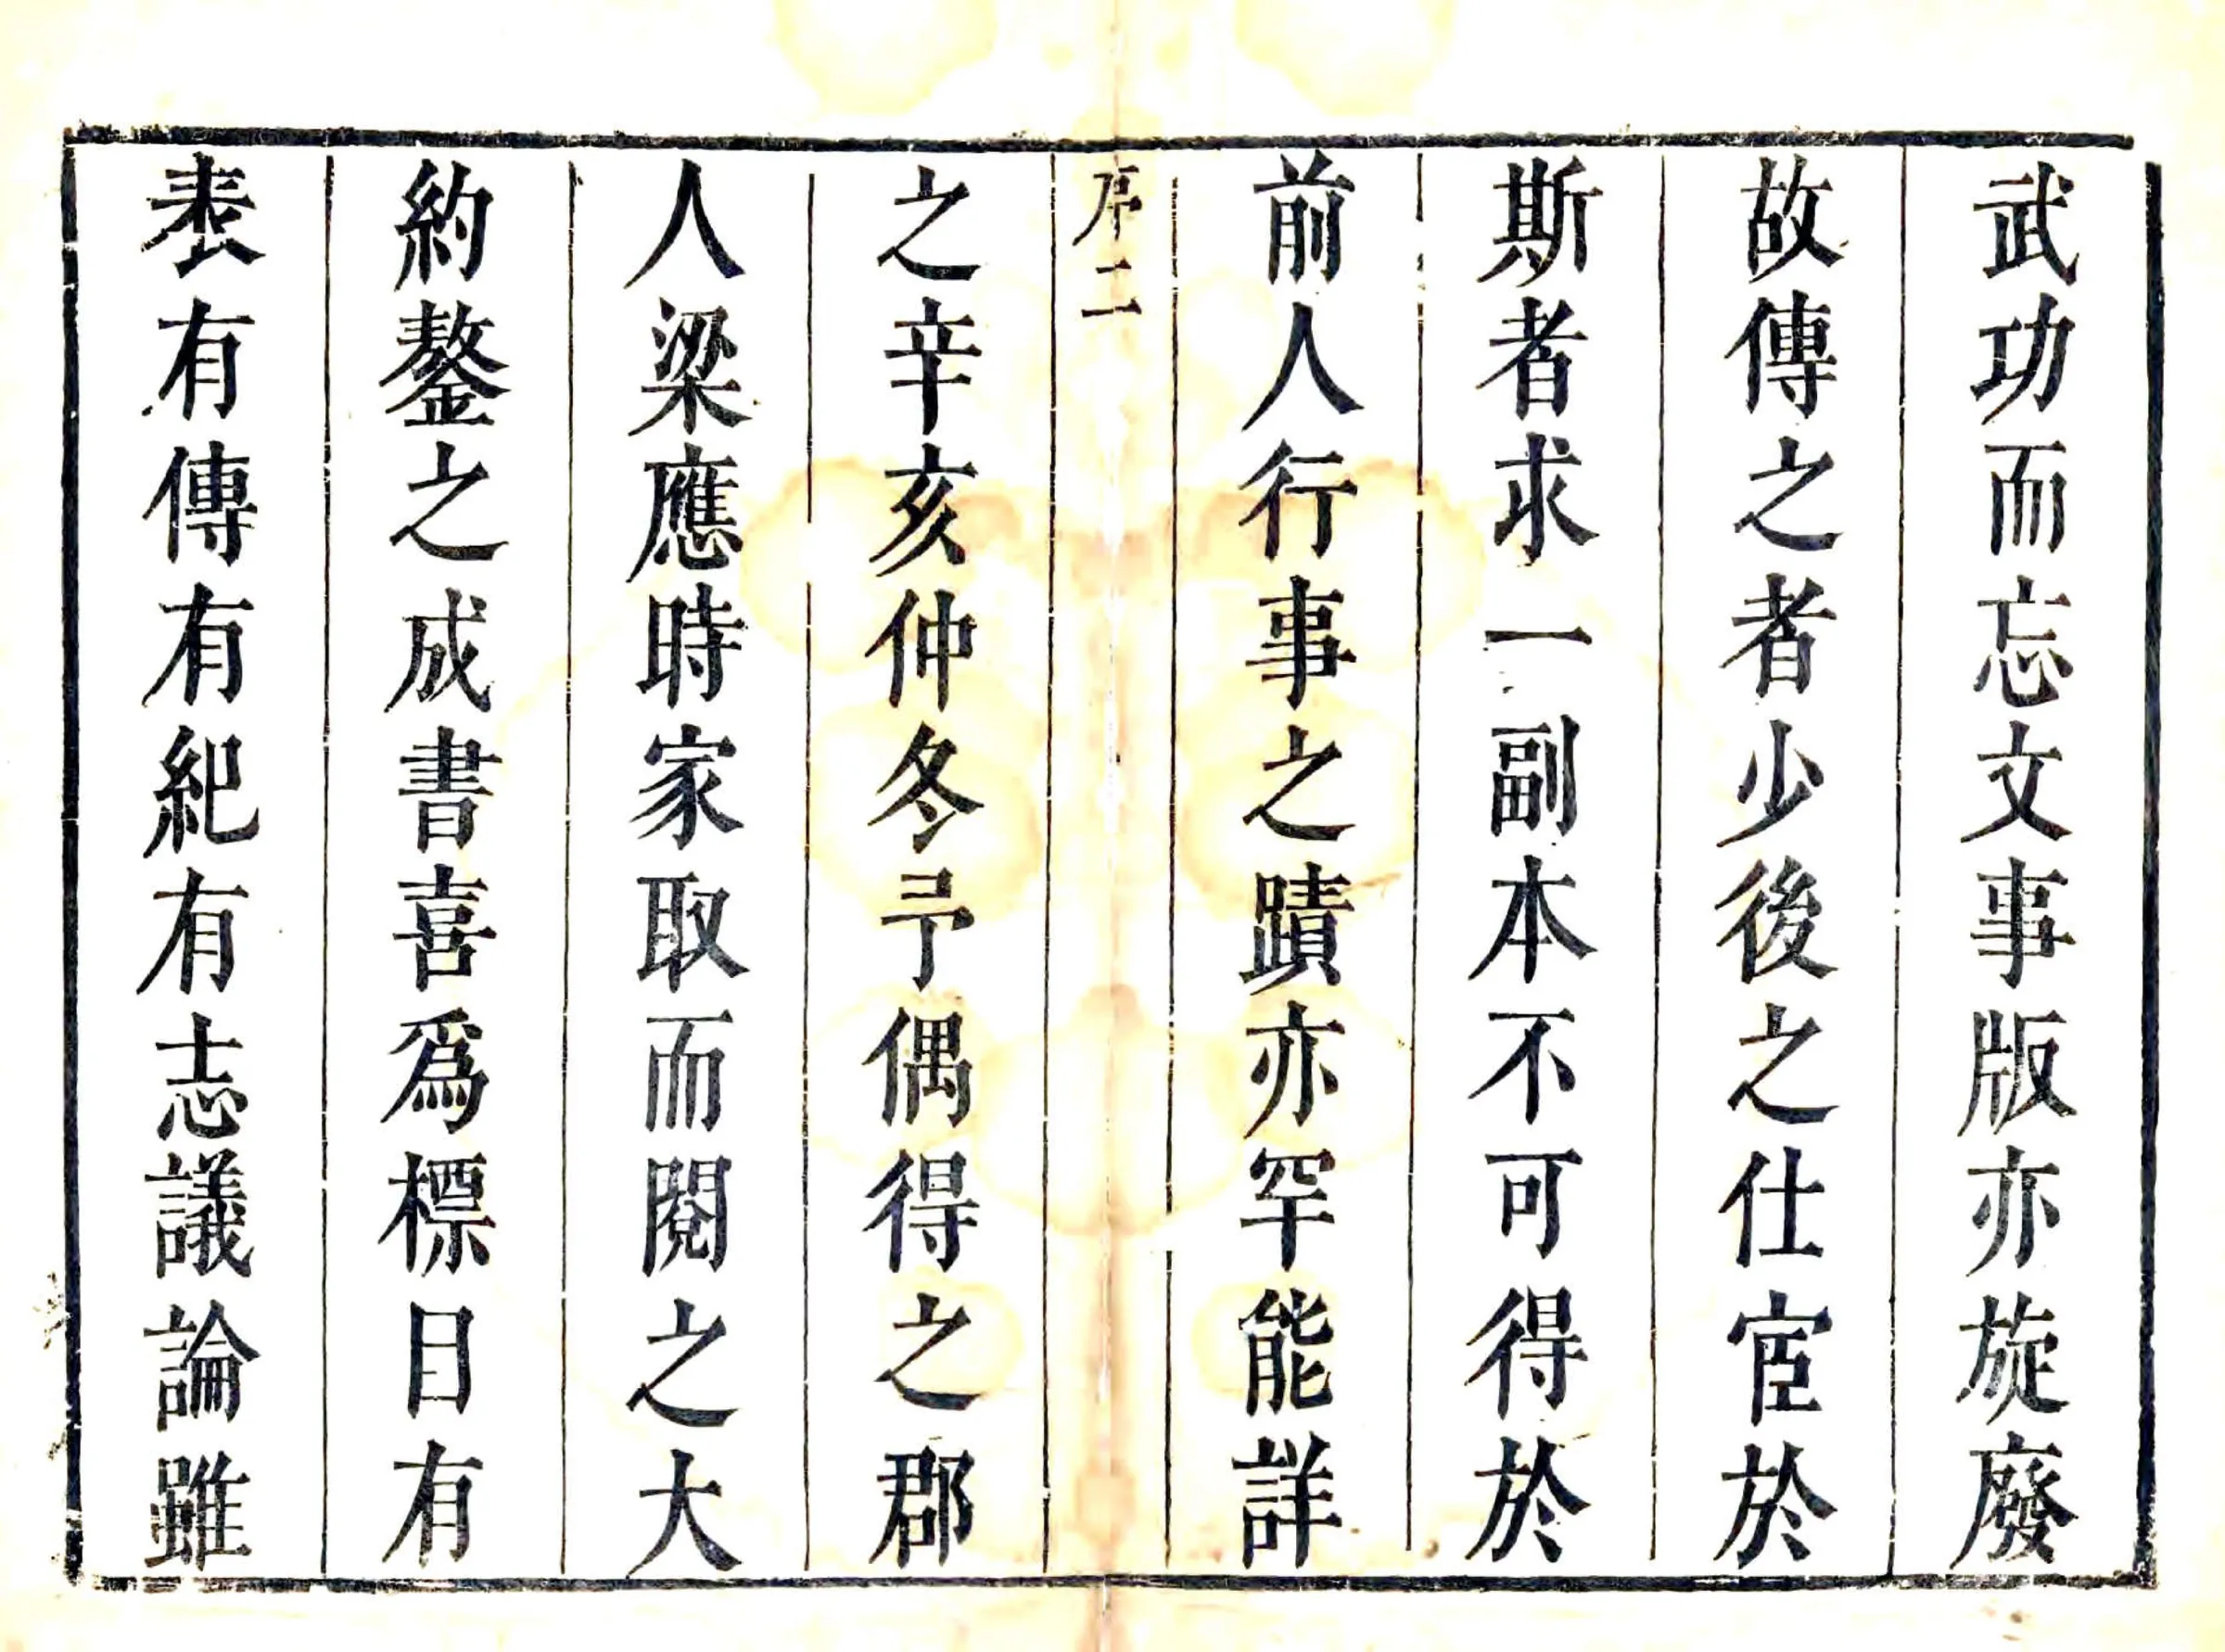 武功而忘文事版亦旋廢
故傳之者少後之仕宦於
斯者求一副本不可得於
前人行事之蹟亦罕能詳
序二
之辛亥仲冬予偶得之郡
人梁應時家取而閱之大
約鏊之成書喜爲標目有
表有傳有紀有志議論雖